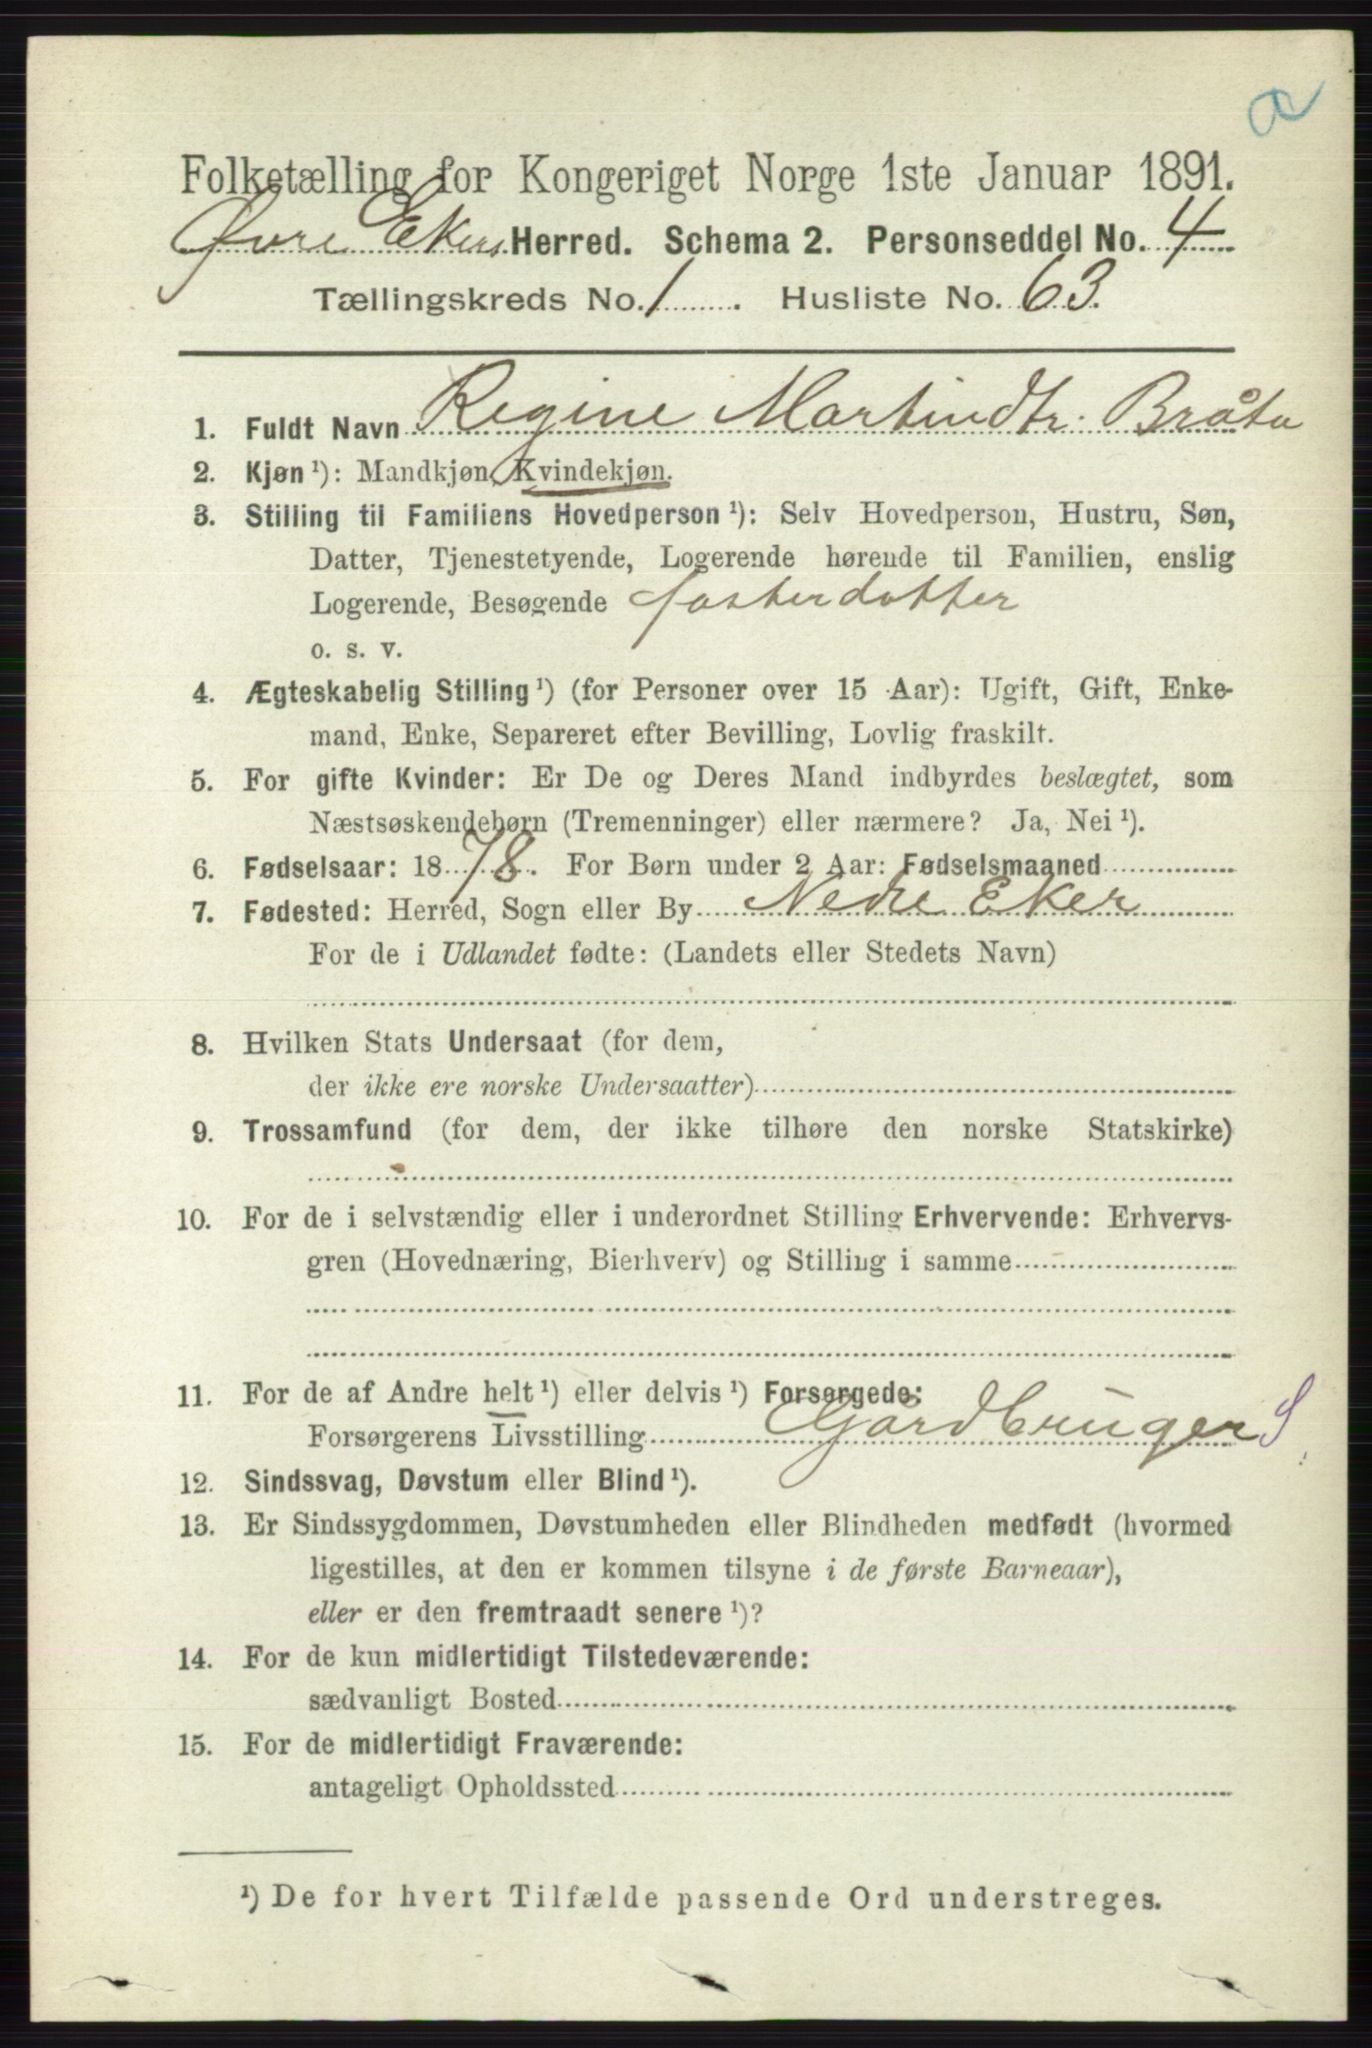 a
Folketælling for Kongeriget Norge 1ste Januar 1891.
Øvre Ekers Herred. Schema 2. Personseddel No. 4
Tællingskreds No. 1. Husliste No. 63.
1. Fuldt Navn Regine Martindtr. Bråta
2. Kjøn¹): Mandkjøn, Kvindekjøn.
3. Stilling til Familiens Hovedperson¹): Selv Hovedperson, Hustru, Søn,
Datter, Tjenestetyende, Logerende hørende til Familien, enslig
Logerende, Besøgende fosterdotter
o. s. v.
4. Ægteskabelig Stilling¹) (for Personer over 15 Aar): Ugift, Gift, Enke-
mand, Enke, Separeret efter Bevilling, Lovlig fraskilt.
5. For gifte Kvinder: Er De og Deres Mand indbyrdes beslægtet, som
Næstsøskendebørn (Tremenninger) eller nærmere? Ja, Nei¹).
6. Fødselsaar: 1878. For Børn under 2 Aar: Fødselsmaaned
7. Fødested: Herred, Sogn eller By Nedre Eker
For de i Udlandet fødte: (Landets eller Stedets Navn)
8. Hvilken Stats Undersaat (for dem,
der ikke ere norske Undersaatter)
9. Trossamfund (for dem, der ikke tilhøre den norske Statskirke)
10. For de i selvstændig eller i underordnet Stilling Erhvervende: Erhvervs-
gren (Hovednæring, Bierhverv) og Stilling i samme
11. For de af Andre helt¹) eller delvis¹) Forsørgede:
Forsørgerens Livsstilling Gårdbruger S
12. Sindssvag, Døvstum eller Blind¹).
13. Er Sindssygdommen, Døvstumheden eller Blindheden medfødt (hvormed
ligestilles, at den er kommen tilsyne i de første Barneaar),
eller er den fremtraadt senere¹)?
14. For de kun midlertidigt Tilstedeværende:
sædvanligt Bosted
15. For de midlertidigt Fraværende:
antageligt Opholdssted
¹) De for hvert Tilfælde passende Ord understreges.